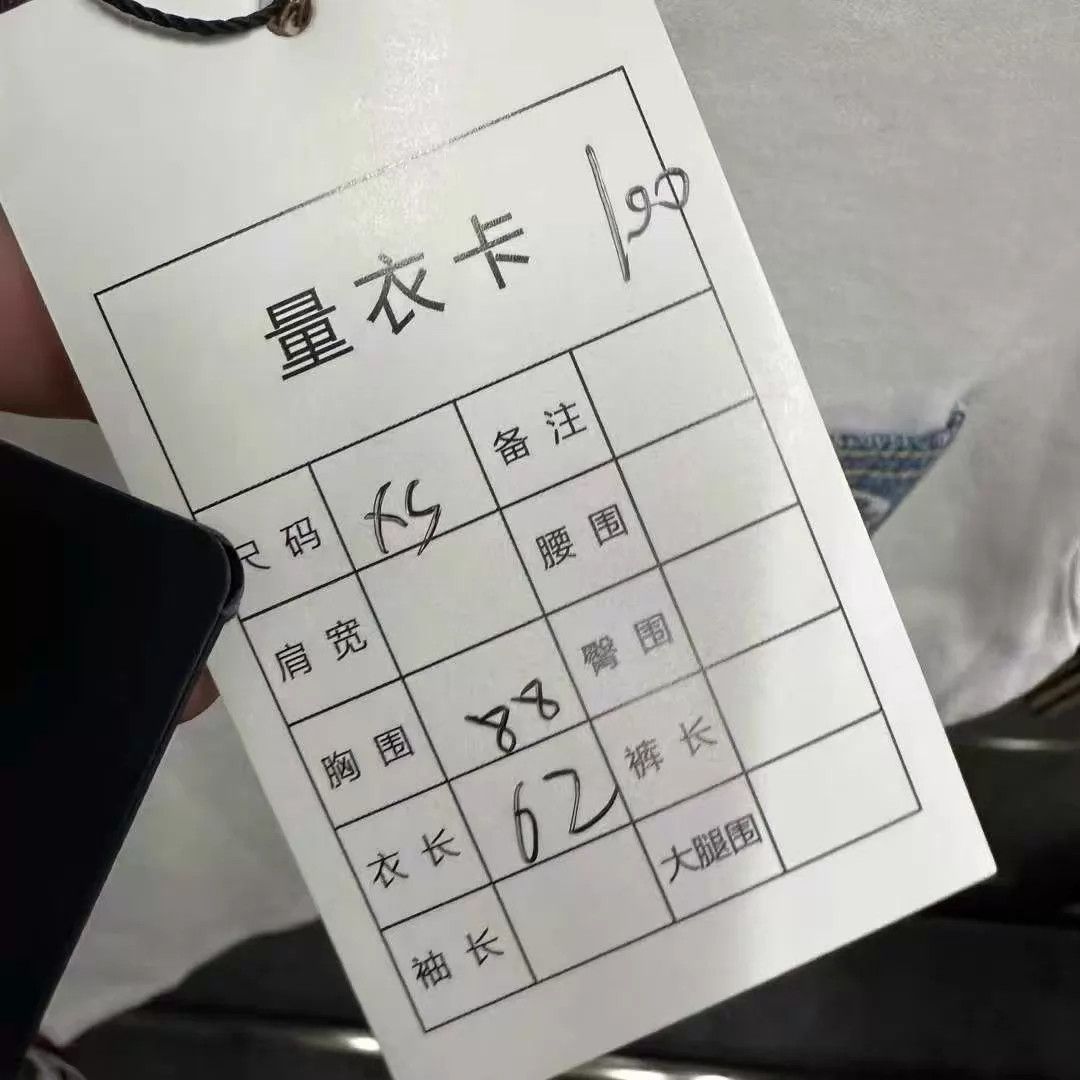 量衣卡 100
尺码 XS 备注
肩宽 腰围
胸围 88 臀围
衣长 62 裤长
袖长 大腿围